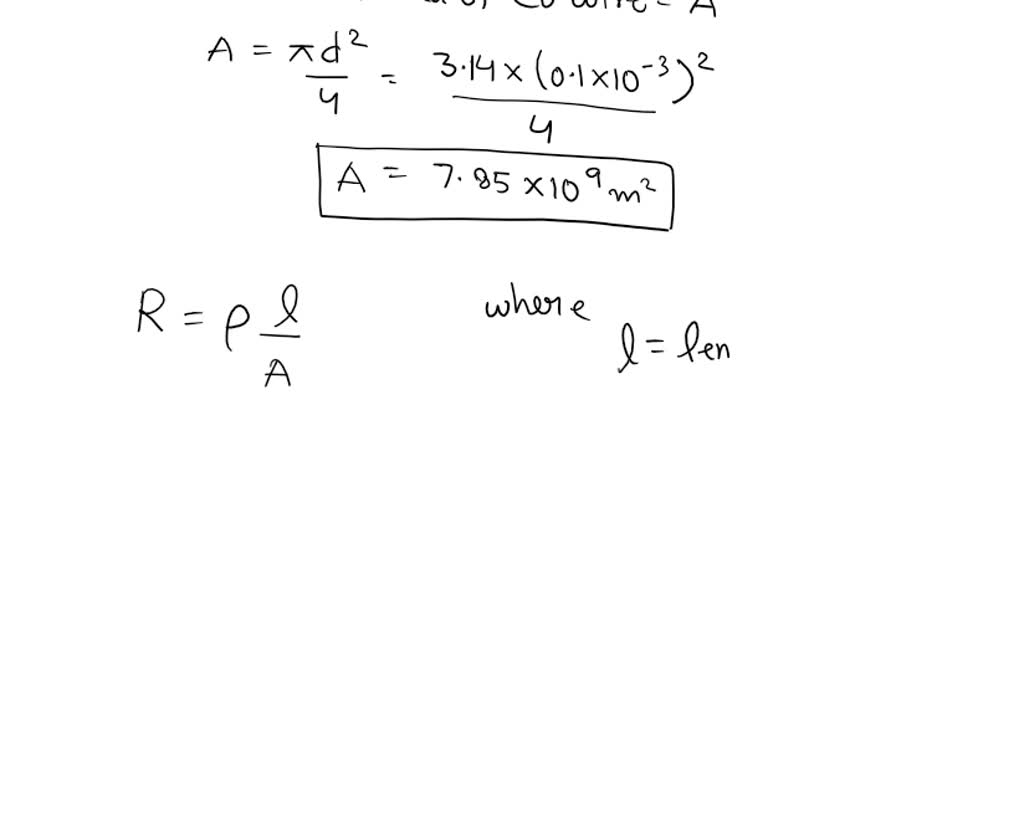 of Cu wire = A
A = πd²/4 = 3.14 × (0.1×10⁻³)²/4
A = 7.85 × 10⁹ m²
R = ρ l/A where
l = len